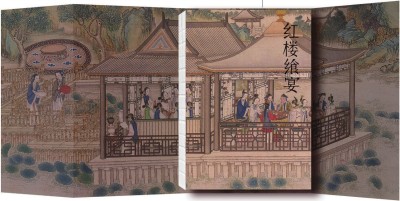 红楼飨宴